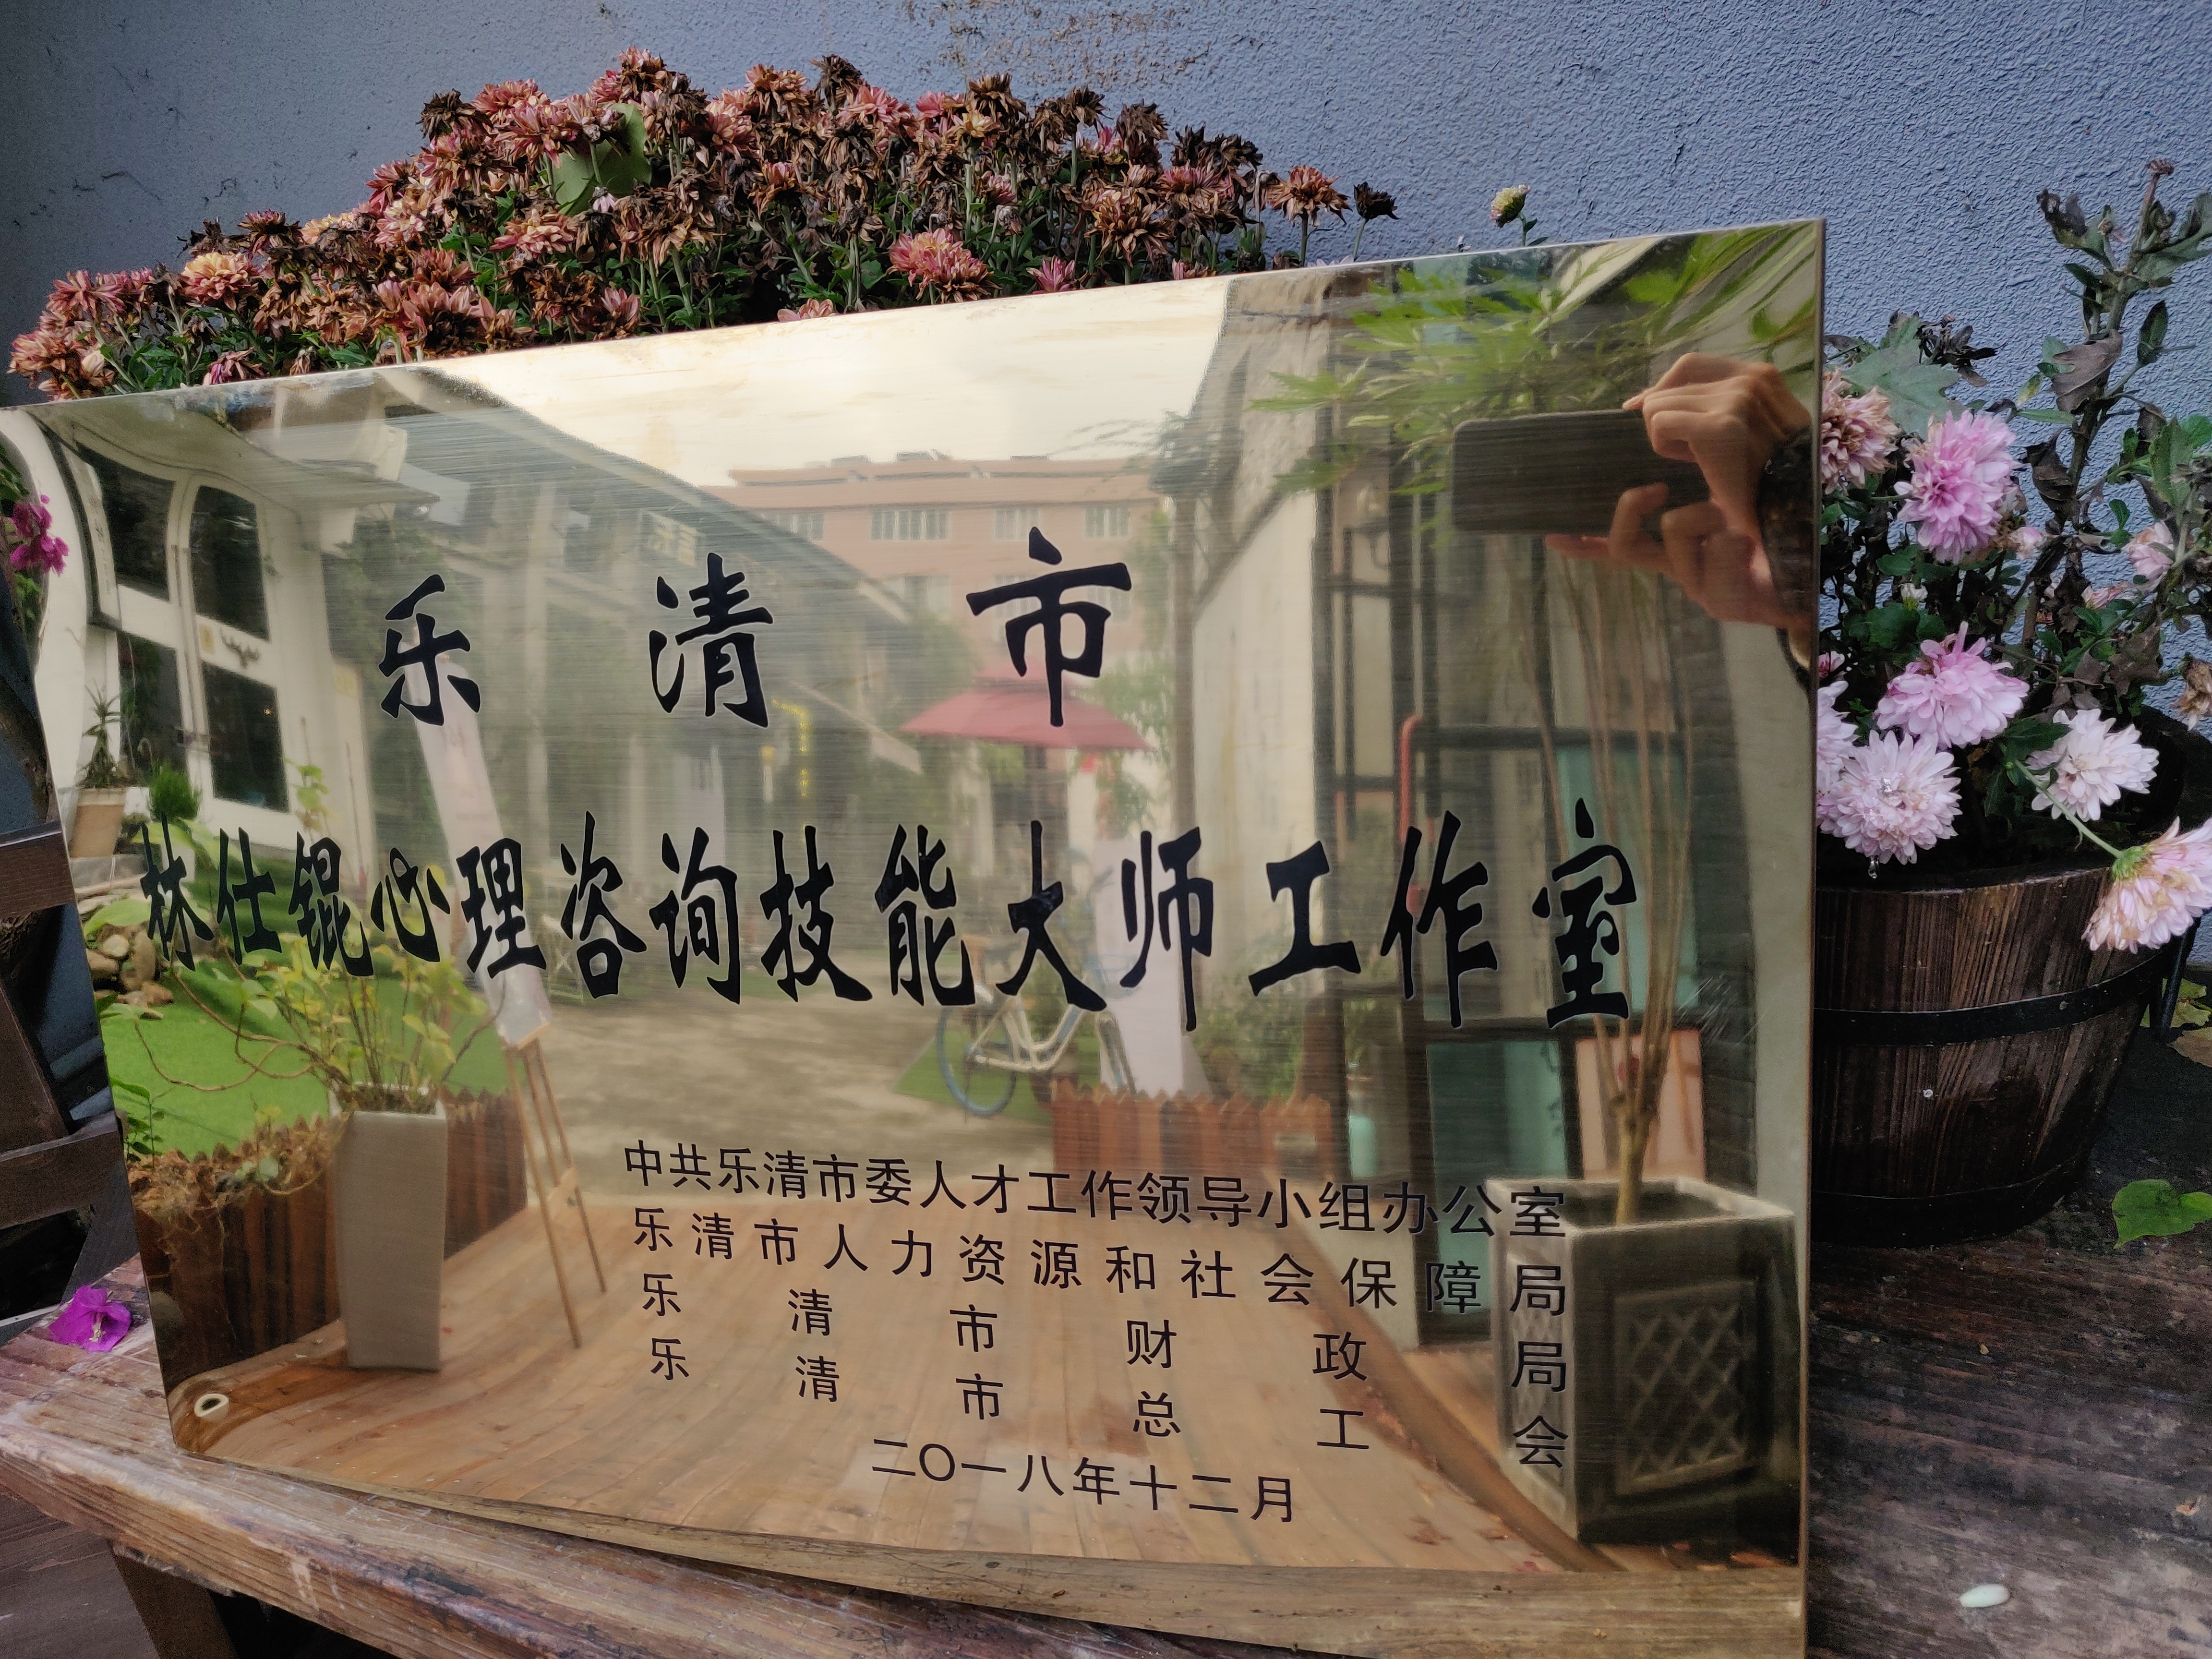 乐清市
林仕锟心理咨询技能大师工作室
中共乐清市委人才工作领导小组办公室
乐清市人力资源和社会保障局
乐清市财政局
乐清市总工会
二〇一八年十二月